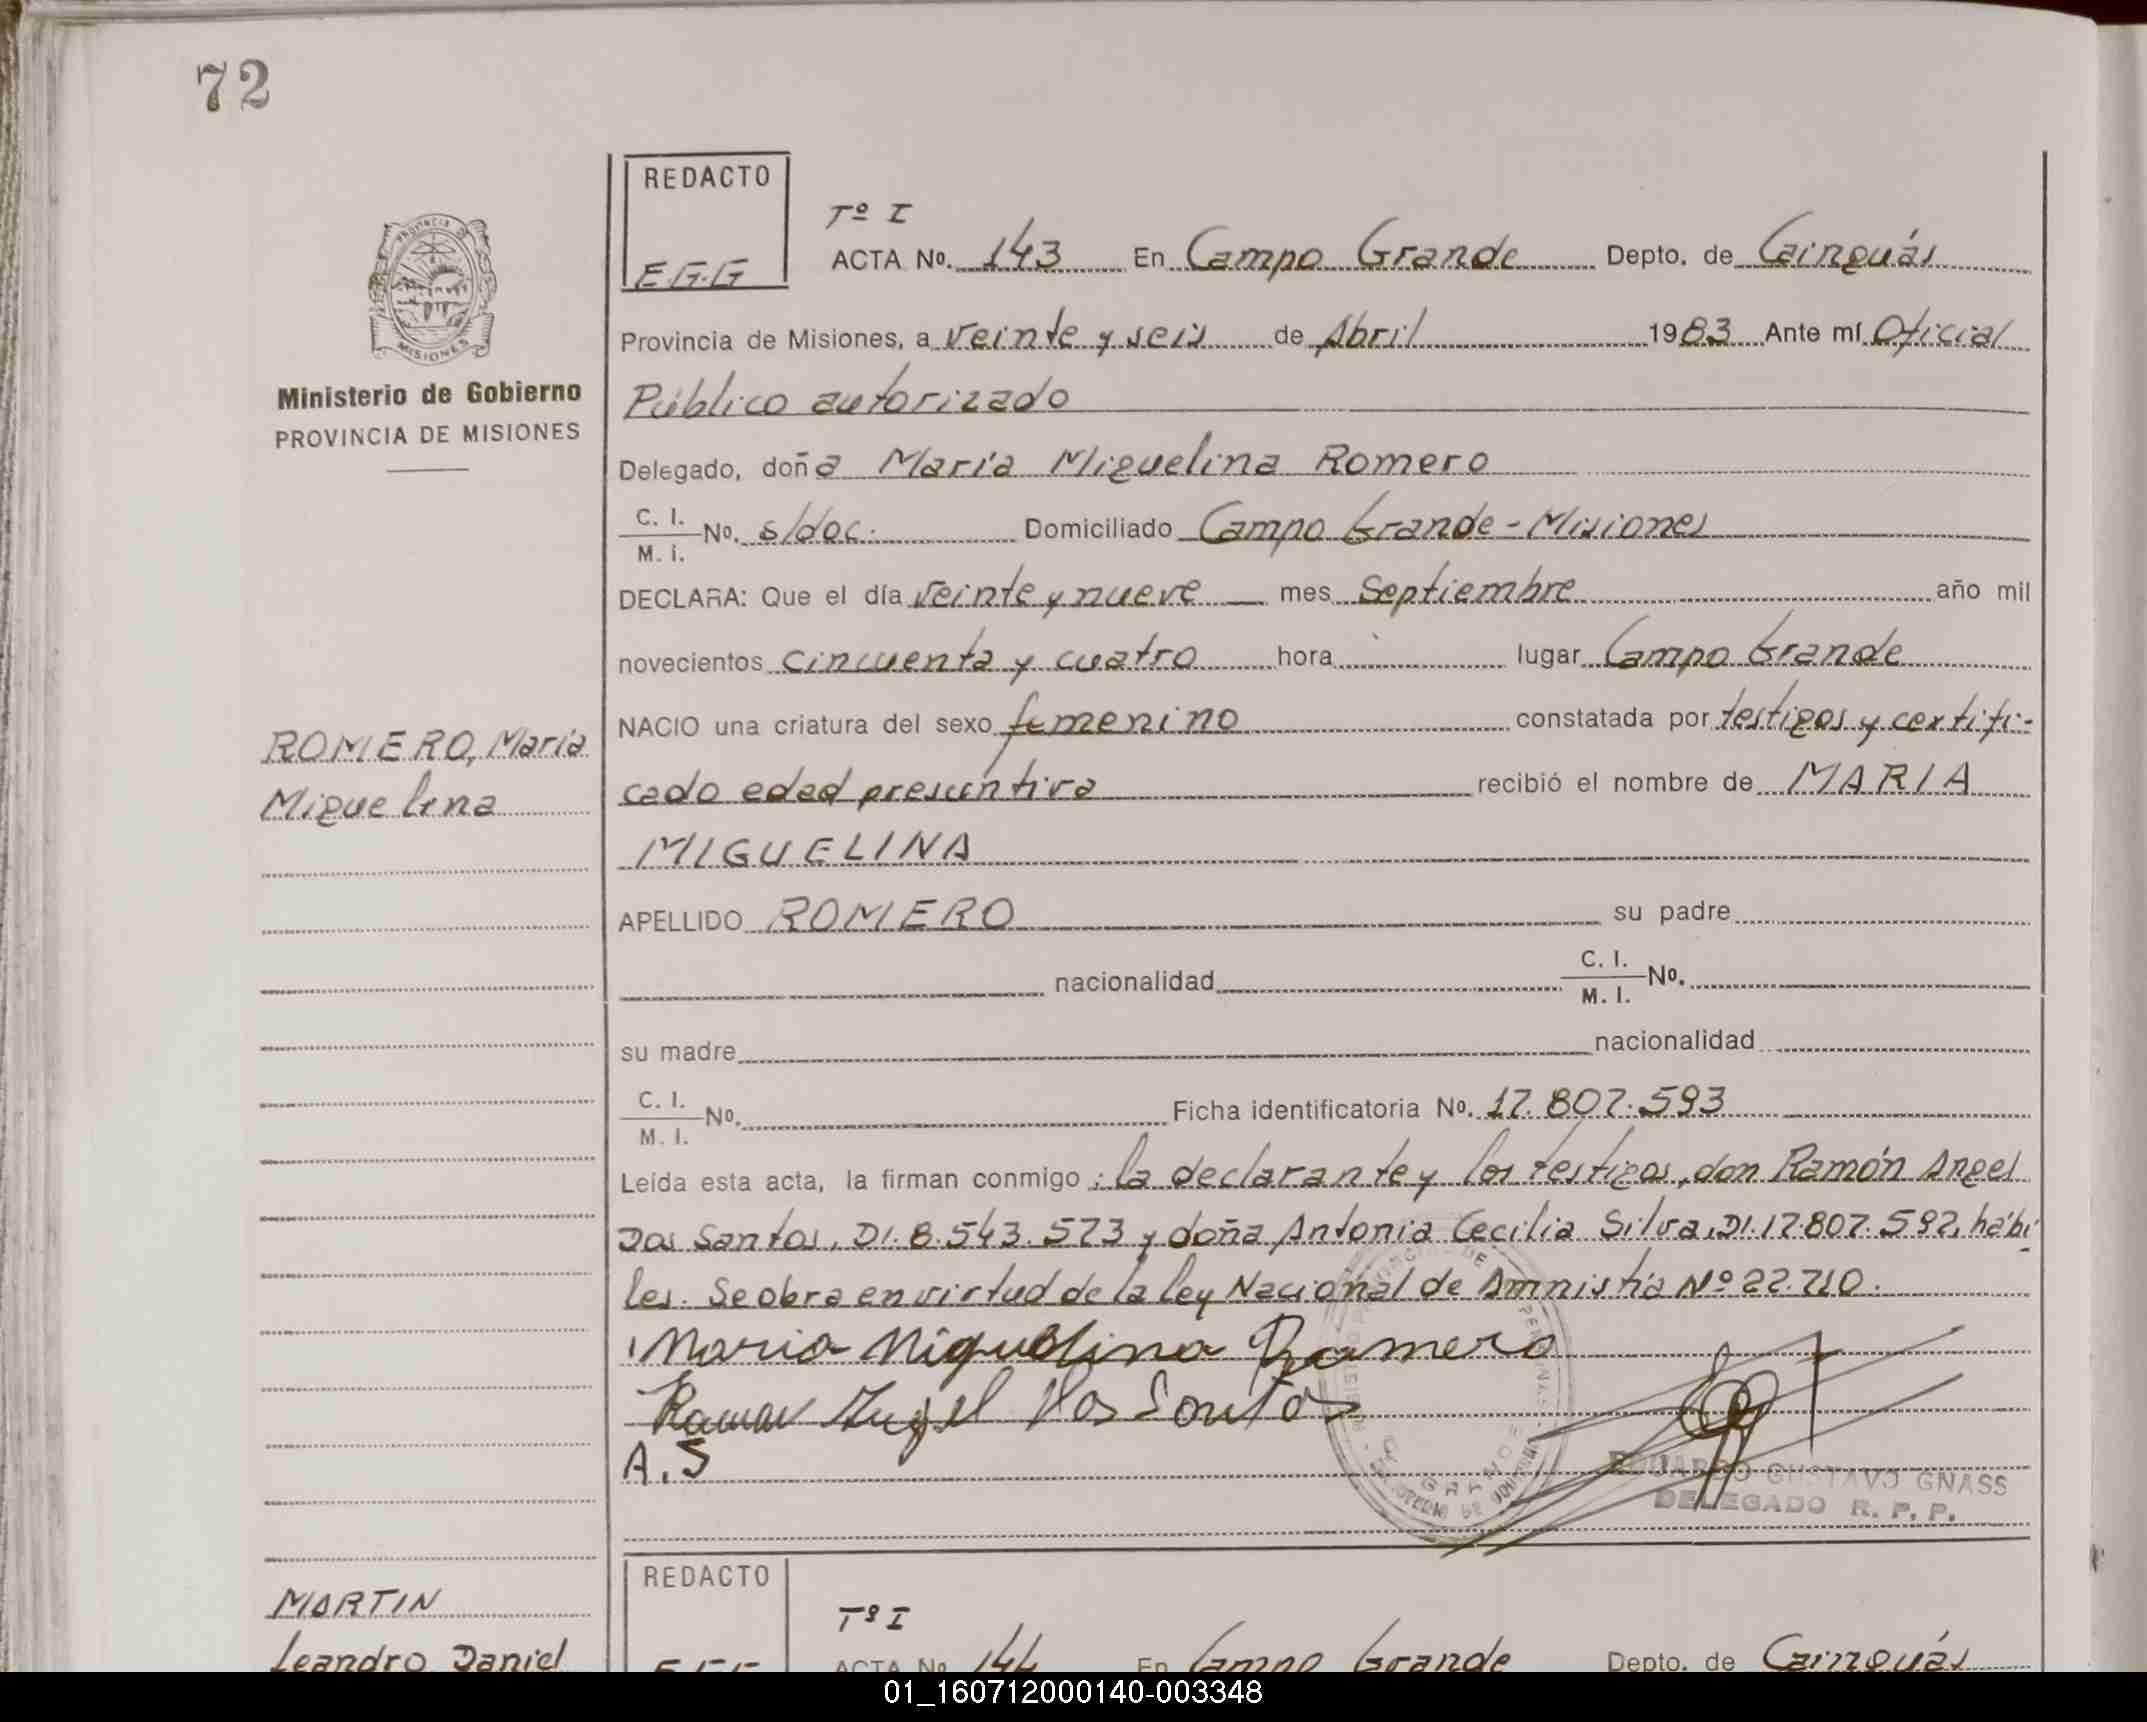 72
REDACTO
E.G.G
Tº I
ACTA Nº. 143 En Campo Grande Depto. de Cainguás
PROVINCIA DE
MISIONES
Provincia de Misiones, a veinte y seis de Abril 1983 Ante mí Oficial
Ministerio de Gobierno
PROVINCIA DE MISIONES
Público autorizado
Delegado, doña María Miguelina Romero
C. I.
M. I. Nº. s/doc. Domiciliado Campo Grande - Misiones
DECLARA: Que el día veinte y nueve mes Septiembre año mil
novecientos cincuenta y cuatro hora lugar Campo Grande
NACIO una criatura del sexo femenino constatada por testigos y certifi-
ROMERO, María
Miguelina
cado edad presuntiva recibió el nombre de MARIA
MIGUELINA
APELLIDO ROMERO su padre
nacionalidad C. I.
M. I. Nº.
su madre nacionalidad
C. I.
M. I. Nº. Ficha identificatoria Nº. 17.807.593
Leída esta acta, la firman conmigo: la declarante y los testigos, don Ramón Angel
Dos Santos, DI. 8.543.573 y doña Antonia Cecilia Silva, DI. 17.807.592, hábi
les. Se obra en virtud de la ley Nacional de Amnistía Nº 22.710.
Maria Miguelina Romero
Ramon Angel Dos Santos
A.S
EDUARDO GUSTAVO GNASS
DELEGADO R. P. P.
REDACTO
Tº I
MARTIN
Leandro Daniel
ACTA Nº 144 En Campo Grande Depto. de Cainguás
01_160712000140-003348